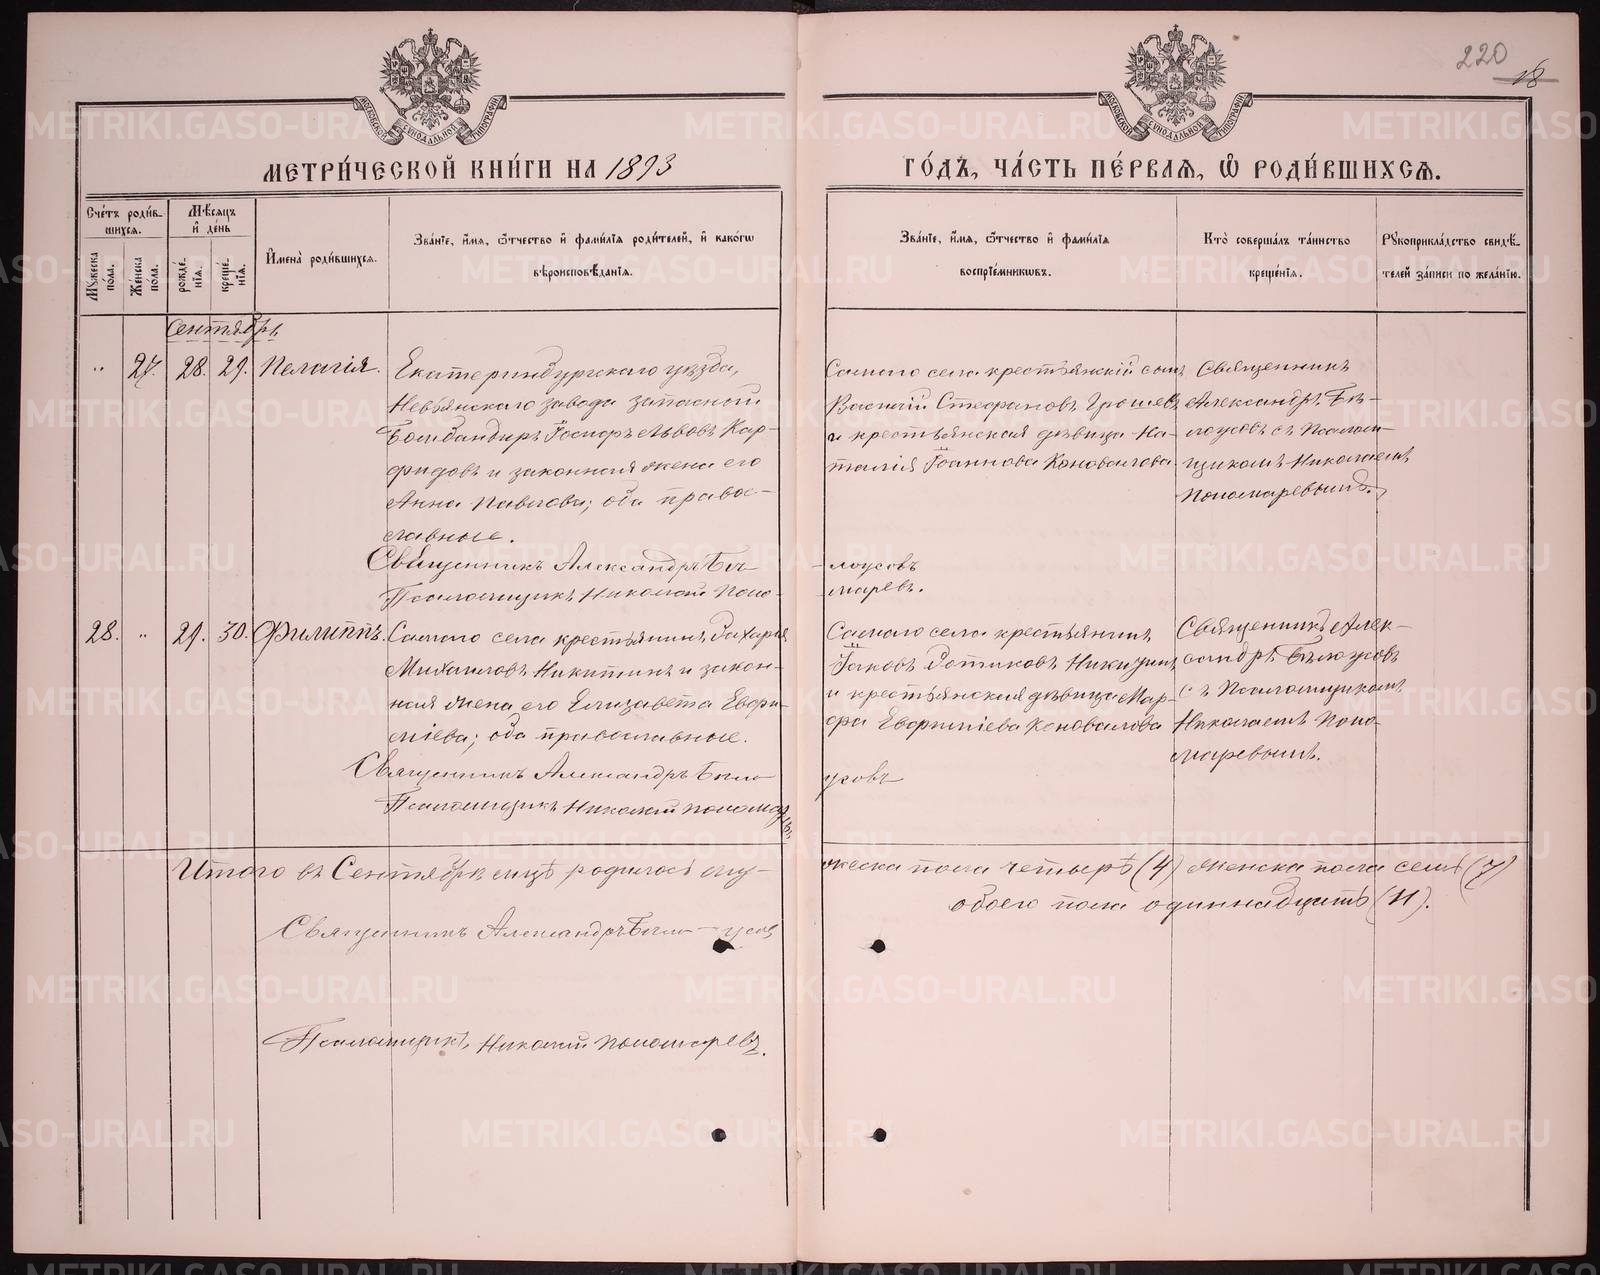 220
18
МОСКОВСКОЙ СѴНОДАЛЬНОЙ ТИПОГРАФІИ
МОСКОВСКОЙ СѴНОДАЛЬНОЙ ТИПОГРАФІИ
МЕТРИ́ЧЕСКОЙ КНИ́ГИ НА 1893
ГО́ДЪ, ЧА́СТЬ ПЕ́РВАѦ, Ѡ҆ РОДИ́ВШИХСѦ.
Сче́тъ роди́в-
шихсѧ.
Мѣ́сѧцъ
и҆ де́нь
Мꙋ́жеска
пола.
Же́нска
пола.
рожде́-
нїѧ.
креще́-
нїѧ.
И҆мена̀ роди́вшихсѧ.
Зва́нїе, и҆́мѧ, ѻ҆́тчество и҆ фами́лїѧ роди́телей, и҆ како́гѡ
вѣроисповѣ́данїѧ.
Зва́нїе, и҆́мѧ, ѻ҆́тчество и҆ фами́лїѧ
воспрїе́мникѡвъ.
Кто̀ соверша́лъ та́инство
креще́нїѧ.
Рꙋкоприкла́дство свидѣ́-
телей за́писи по жела́нїю.
Сентябрь
„ 27. 28. 29. Пелагія.
Екатеринбургскаго уѣзда,
Невьянскаго завода запасной
Бомбандиръ Іосифъ Львовъ Кар-
фидовъ и законная жена его
Анна Павлова; оба право-
славные.
Священникъ Александръ Бѣ-
лоусовъ
Псаломщикъ Николай Поно-
маревъ.
Самаго села крестьянскій сынъ
Василій Стефановъ Грошевъ
и крестьянская дѣвица На-
талія Іоаннова Коновалова
Священникъ
Александръ Бѣ-
лоусовъ съ Псалом-
щикомъ Николаемъ
Пономаревымъ.
28. „ 29. 30. Филиппъ.
Самаго села крестьянинъ Захарія
Михаиловъ Никитинъ и закон-
ная жена его Елизавета Евфи-
міева; оба православные.
Священникъ Александръ Бѣло-
усовъ
Псаломщикъ Николай Пономаревъ.
Самаго села крестьянинъ
Іаковъ Никитинъ
и крестьянская дѣвица Мар-
фа Коновалова
Священникъ Алек-
сандръ Бѣлоусовъ
съ Псаломщикомъ
Николаемъ Поно-
маревымъ.
Итого въ Сентябрѣ мцѣ родилось му-
жеска пола четыре (4) женска пола семь (7)
обоего пола одиннадцать (11).
Священникъ Александръ Бѣло-усовъ
Псаломщикъ Николай Пономаревъ.
METRIKI.GASO-URAL.RU